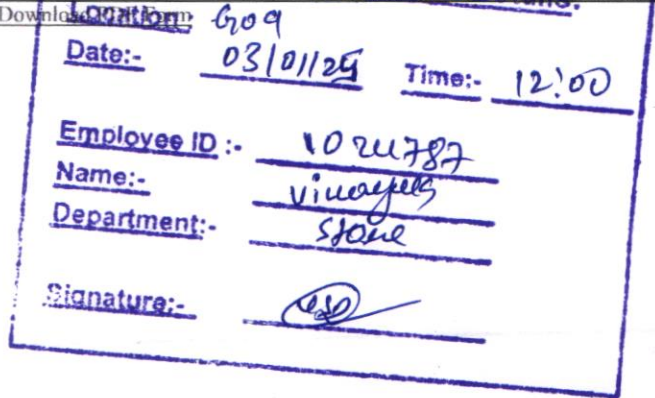 Download PDF Form
Location: Goa
Date:- 03/01/25 Time:- 12:00
Employee ID :- 1024787
Name:-
Department:- Store
Signature:-